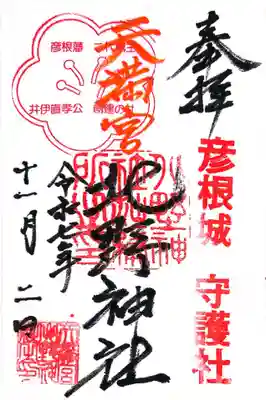 奉拝
彦根城 守護社
天満宮
北野神社
令和七年
十一月 二日
彦根藩 二代藩主
井伊直孝公